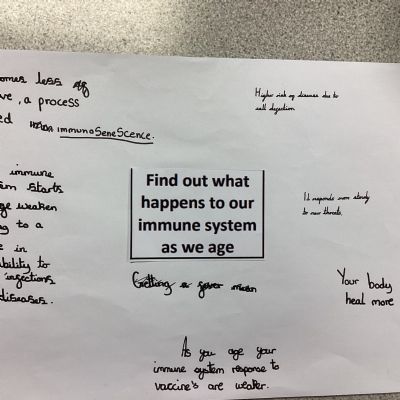 omes less eff
ve, a process
ed immunoSeneScence.
Higher risk of disease due to
cell dejection.
immune
em starts
ge weaken
ng to a
e in
bility to
infections
diseases.
Find out what
happens to our
immune system
as we age
It responds more slowly
to new threats.
Getting a
Your body
heal more
As you age your
immune system response to
vaccine's are weaker.